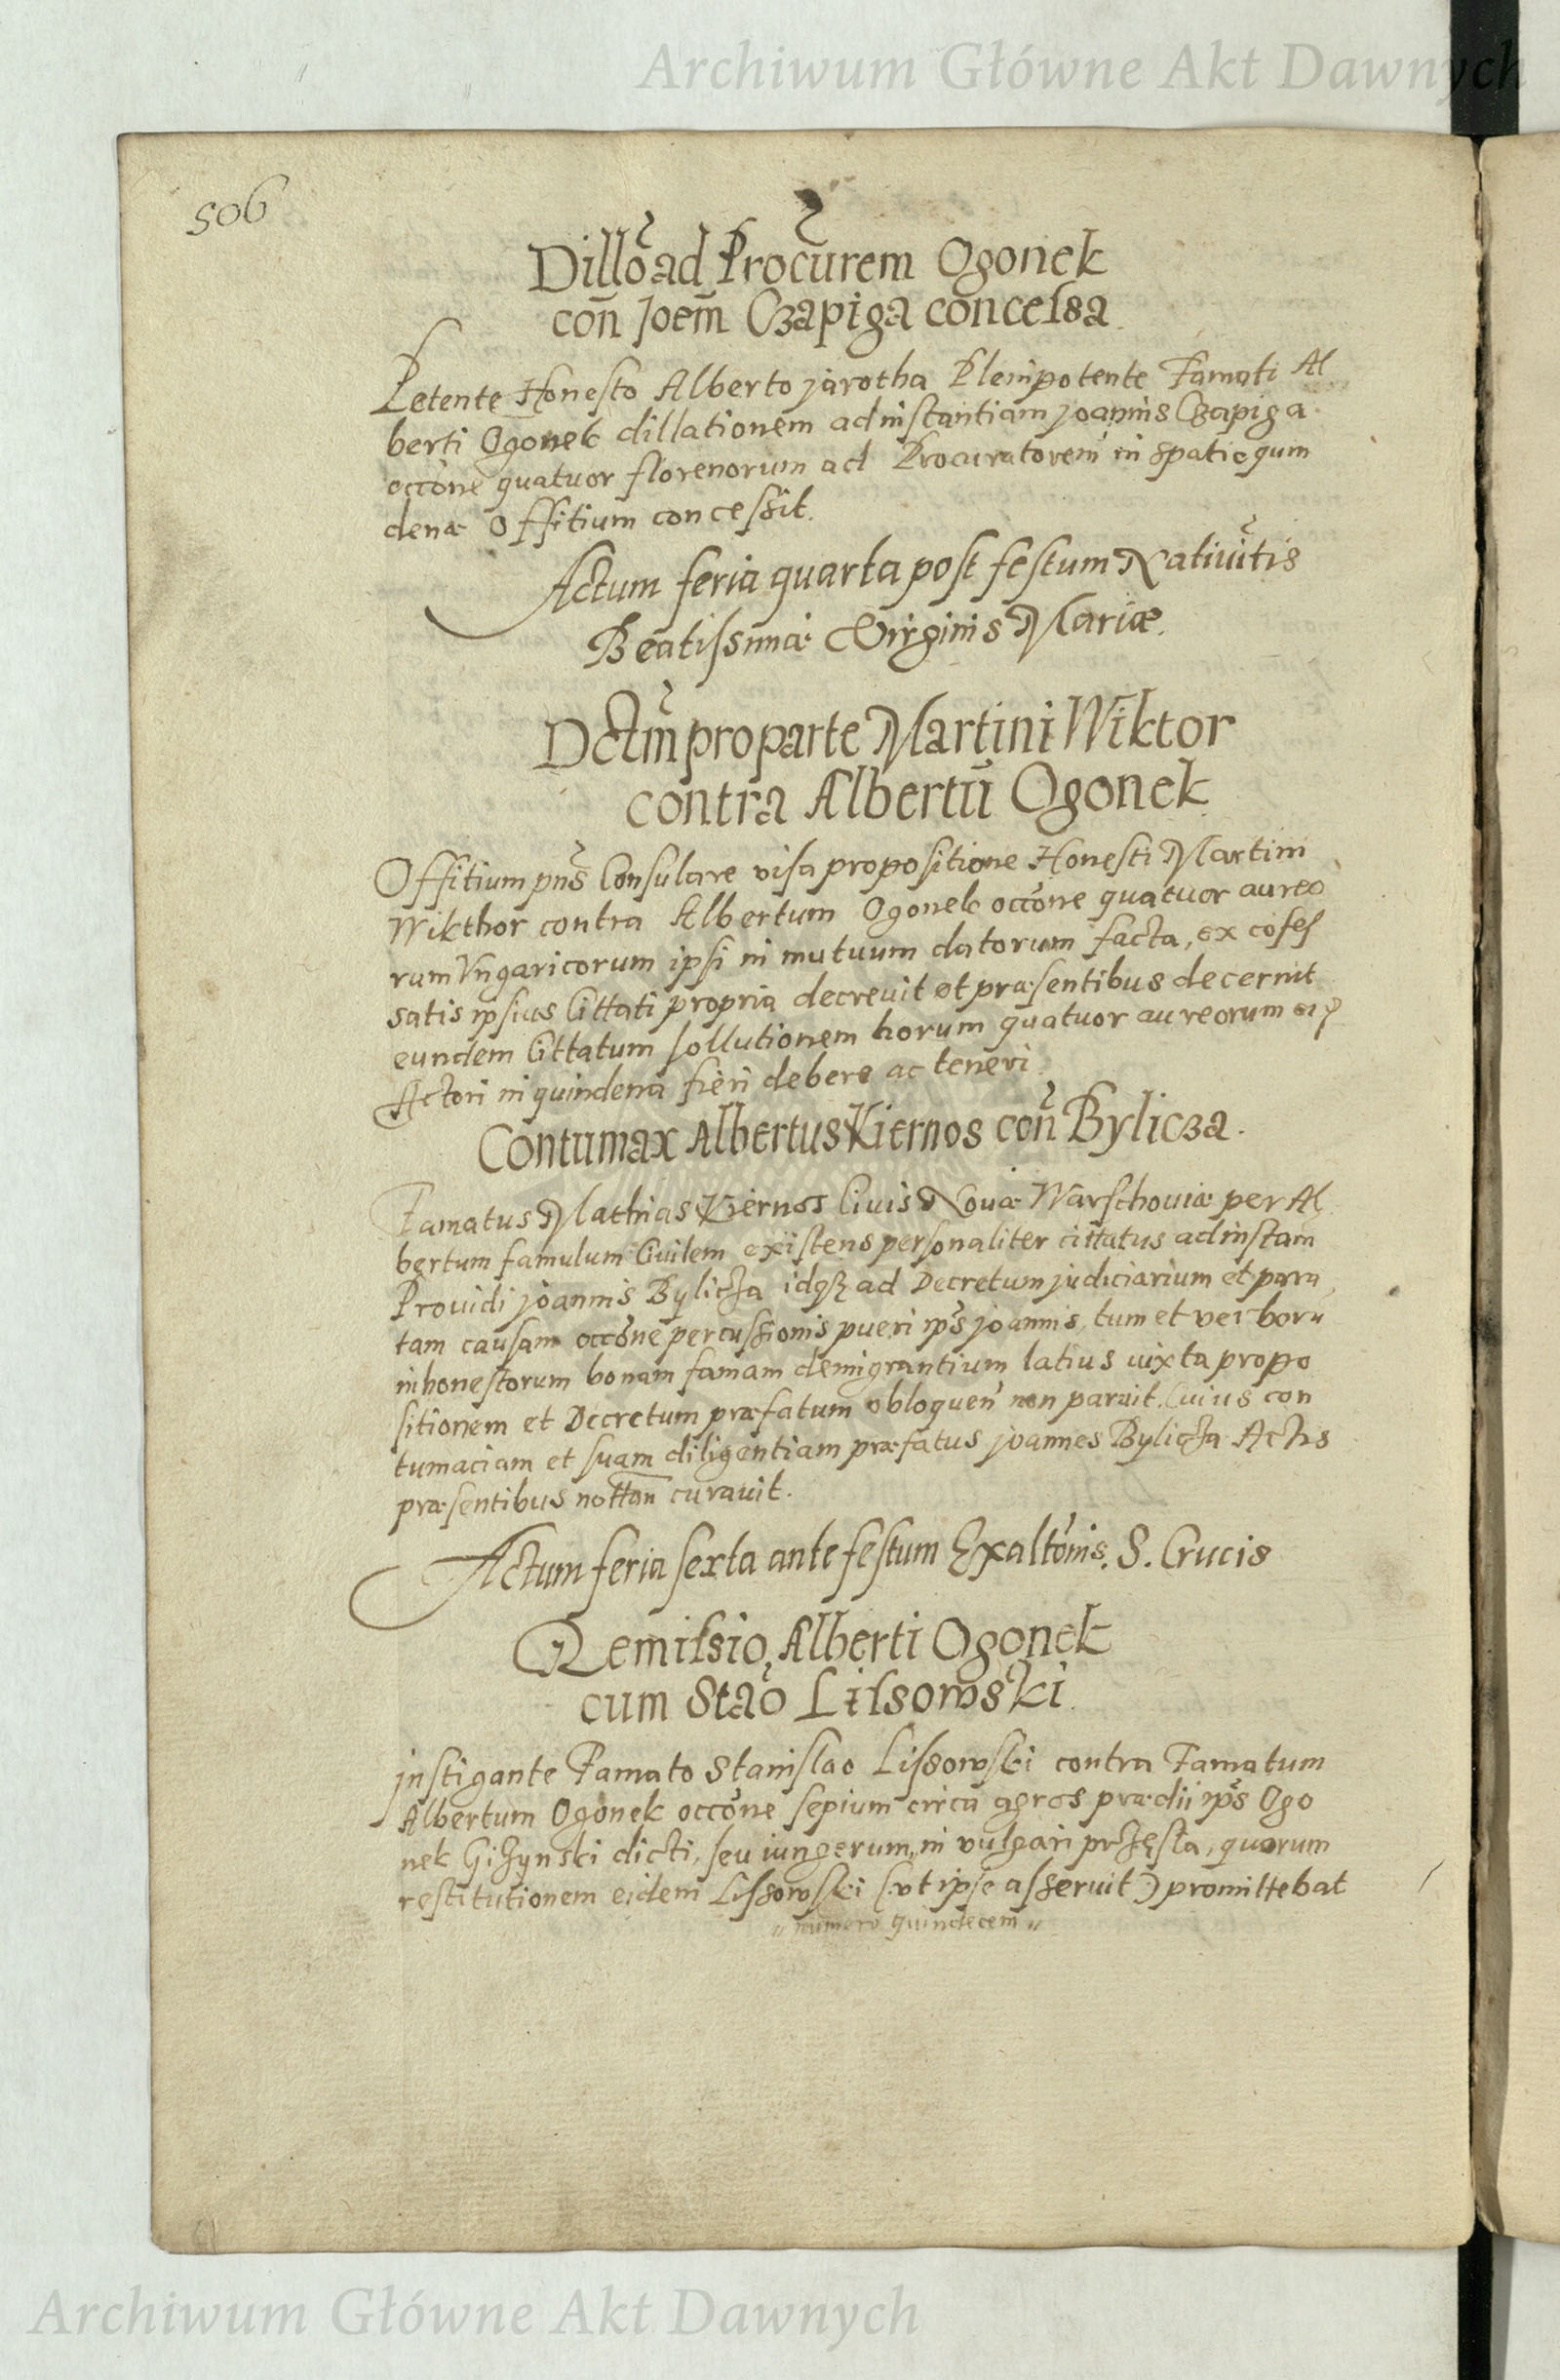 Archiwum Główne Akt Dawnych
506
Dillõ ad Procurem Ogonek
coñ Joem̃ Czapiga concessa
Petente Honesto Alberto jarotha Plenipotente Famati Al
berti Ogonek dillationem ad instantiam joannis Czapiga
occõne quatuor florenorum ad Procuratorem in spatio quin
denæ Offitium concessit.
Actum feria quarta post festum Natiuitis
Beatissimæ Virginis Mariæ.
Dctm̃ pro parte Martini Wiktor
contra Albertū Ogonek
Offitium pn̄s Consulare visa propositione Honesti Martini
Wikthor contra Albertum Ogonek occõne quatuor aureo
rum Vngaricorum ipsi in mutuum datorum facta, ex cofes
satis ipsius Cittati propria decreuit et præsentibus decernit
eundem Cittatum sollutionem horum quatuor aureorum
Actori in quindena fieri debere ac teneri.
Contumax Albertus Kiernos coñ Bylicza.
Famatus Mathias Kiernos Ciuis Nouæ Warschouiæ per Al
bertum famulum Ciuilem existens personaliter cittatus ad instam
Prouidi joannis Bylicza idqʒ ad Decretum judiciarium et para
tam causam occõne percussionis pueri ip̄s joannis, tum et verborū
inhonestorum bonam famam denigrantium latius iuxta propo
sitionem et Decretum præfatum obloquen̄ non paruit. Cuius con
tumaciam et suam diligentiam præfatus joannes Bylicza Actis
præsentibus nottan̄ curauit.
Actum feria sexta ante festum Exaltõnis. S. Crucis
Remissio Alberti Ogonek
cum Staõ Lissowski.
jnstigante Famato Stanislao Lissowski contra Famatum
Albertum Ogonek occõne sepium circa agros prædii ip̄s Ogo
nek Giżynski dicti, seu iungerum, in vulgari przęsła, quorum
restitutionem eidem Lissowski (: vt ipse asseruit :) promittebat
„ numero quindecem „
Archiwum Główne Akt Dawnych